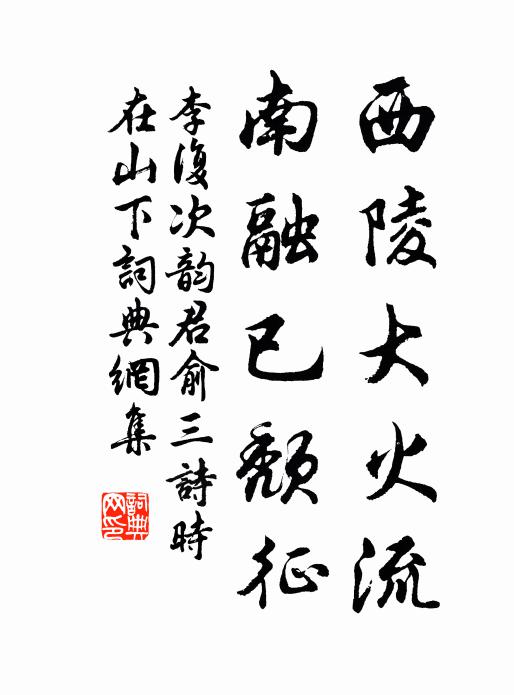 西陵大火流
南融已頹征
李復次韵君俞三詩時
在山下詞典網集
詞典
网印